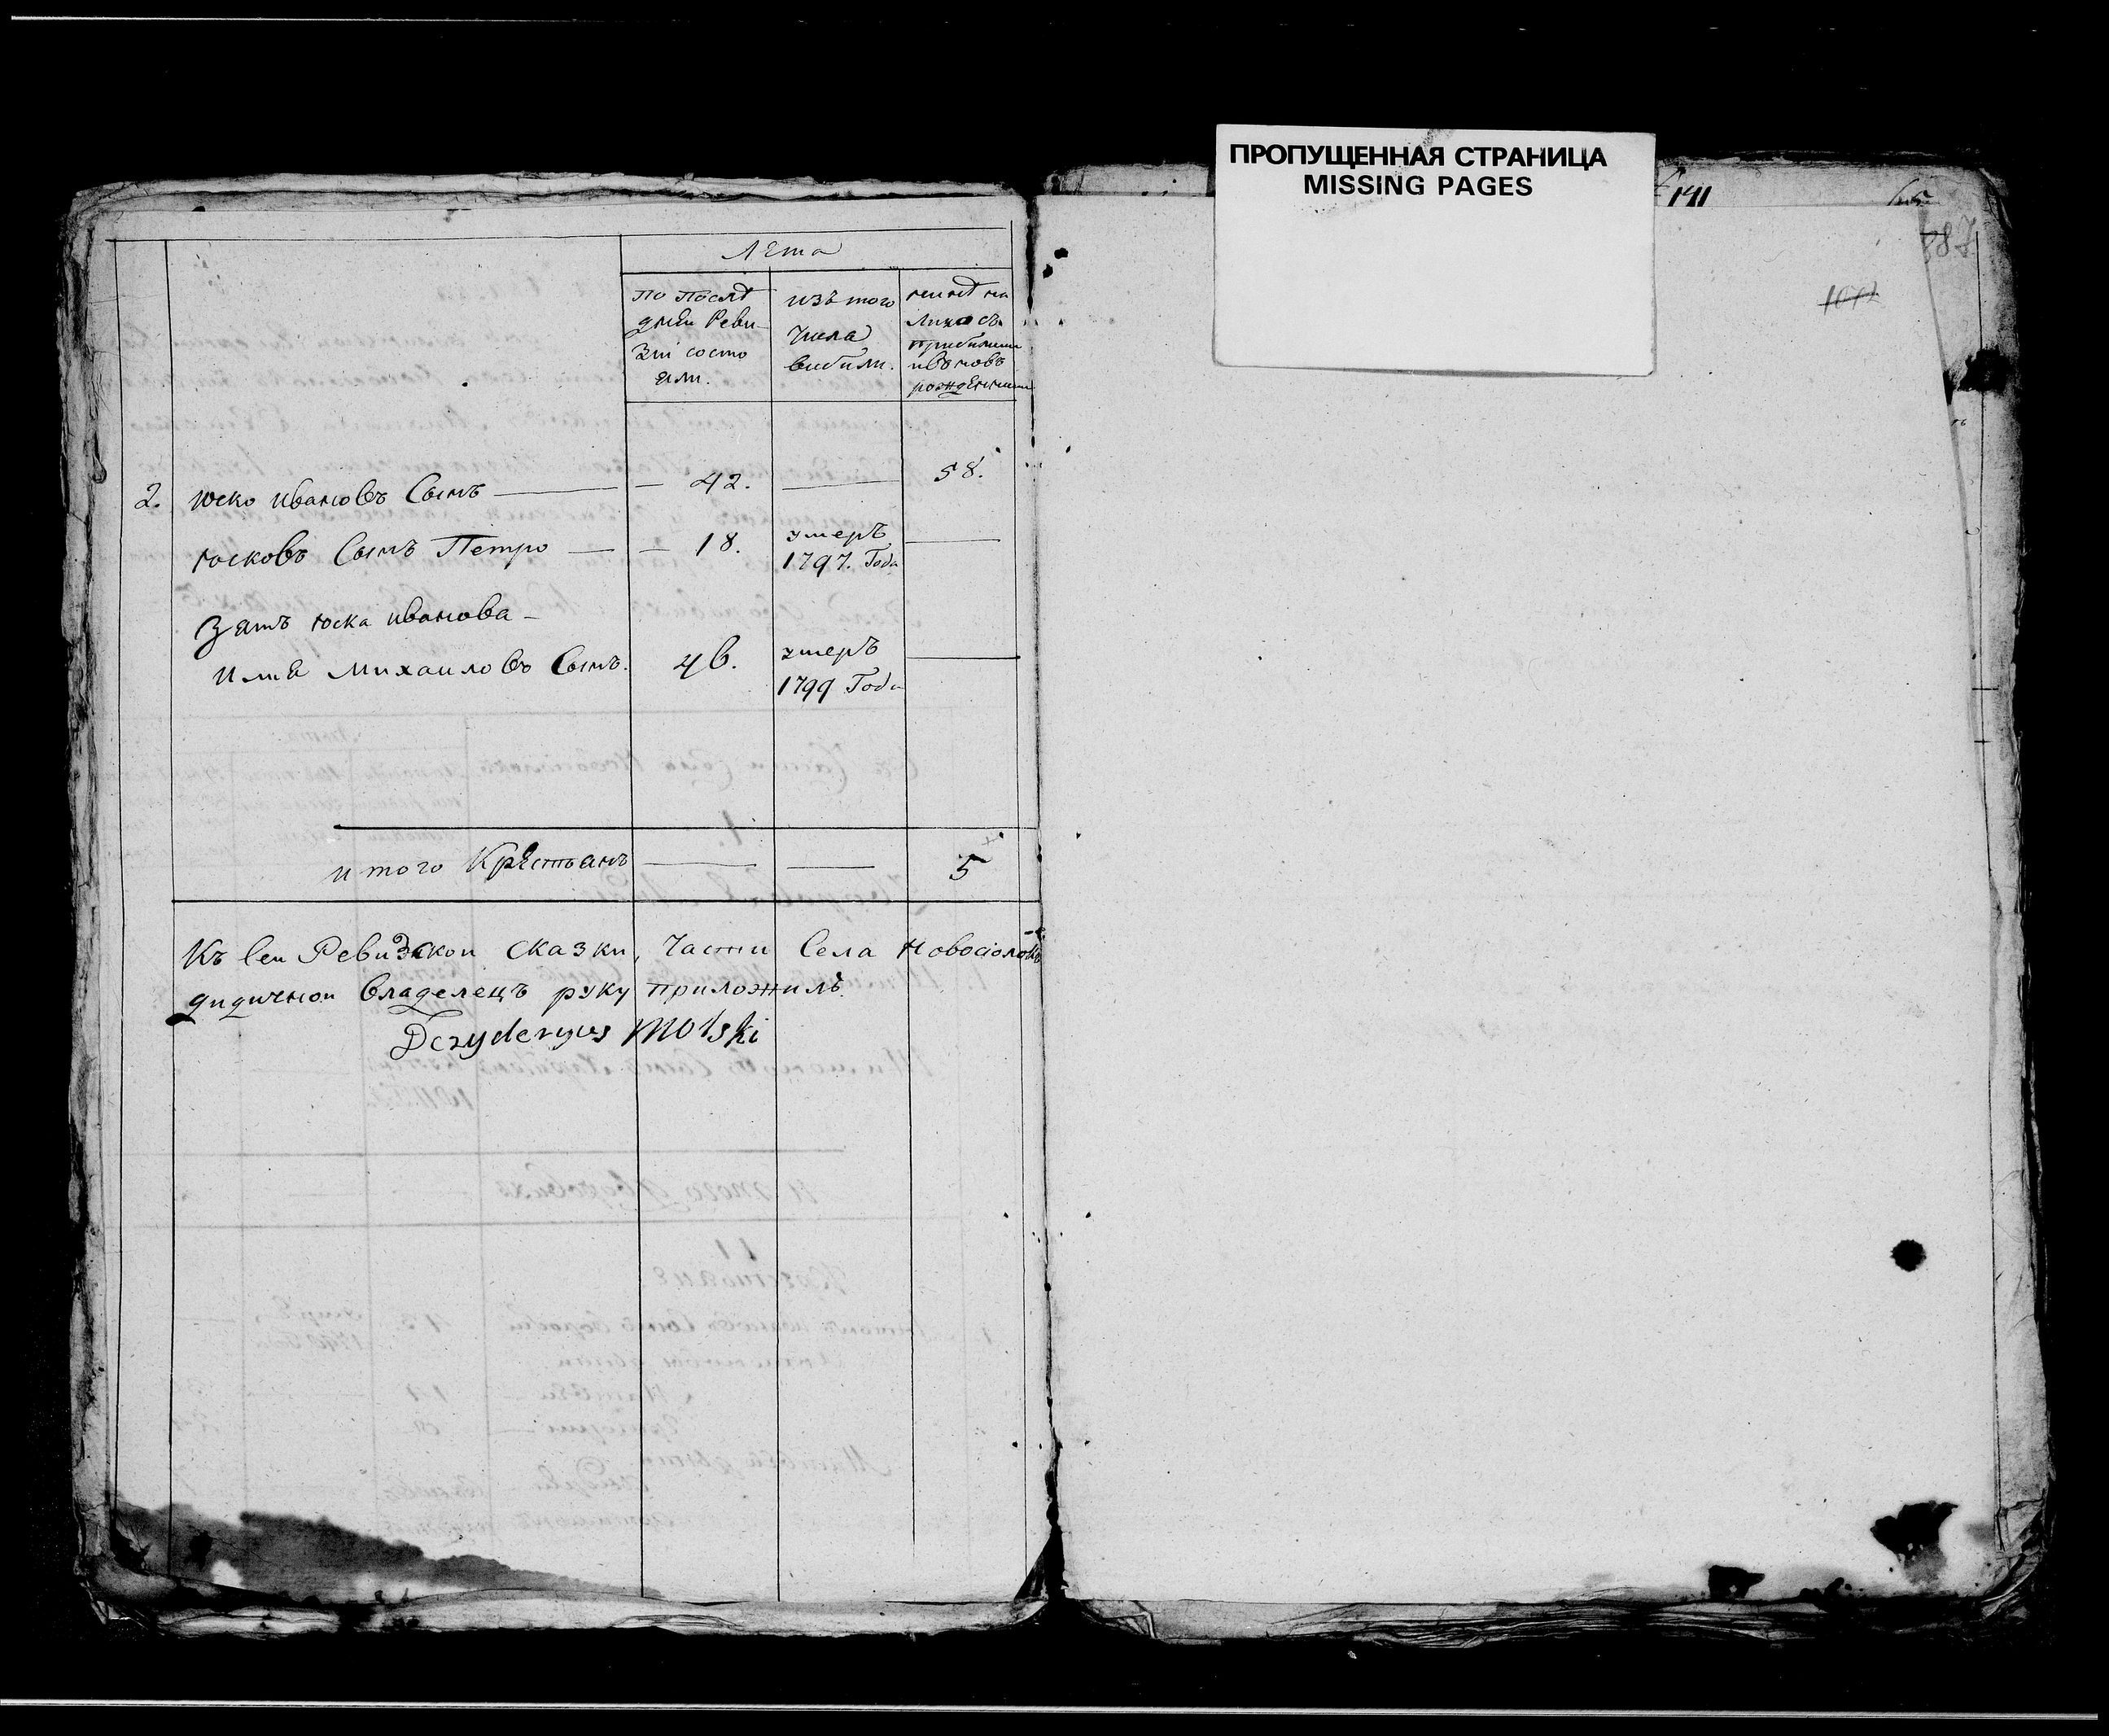 Лета
По После
дней Реви
зіи состо
яли.
изъ того
Числа
выбыли.
ныне на
Лицо съ
прибылыми
и въ новь
рожденными
2. юско ивановъ Сынъ — 42. — 58.
юсковъ Сынъ Петро — 18. умеръ 1797. Года —
Зять юска иванова
илія михаиловъ Сынъ. 46. умеръ 1799 Года —
и того Крестьянъ — — 5
Къ сеи Ревизскои сказки, Части Села Новосіолокъ
дидичнои владелецъ руку приложилъ.
Dezyderyus Molski
ПРОПУЩЕННАЯ СТРАНИЦА
MISSING PAGES
141
887